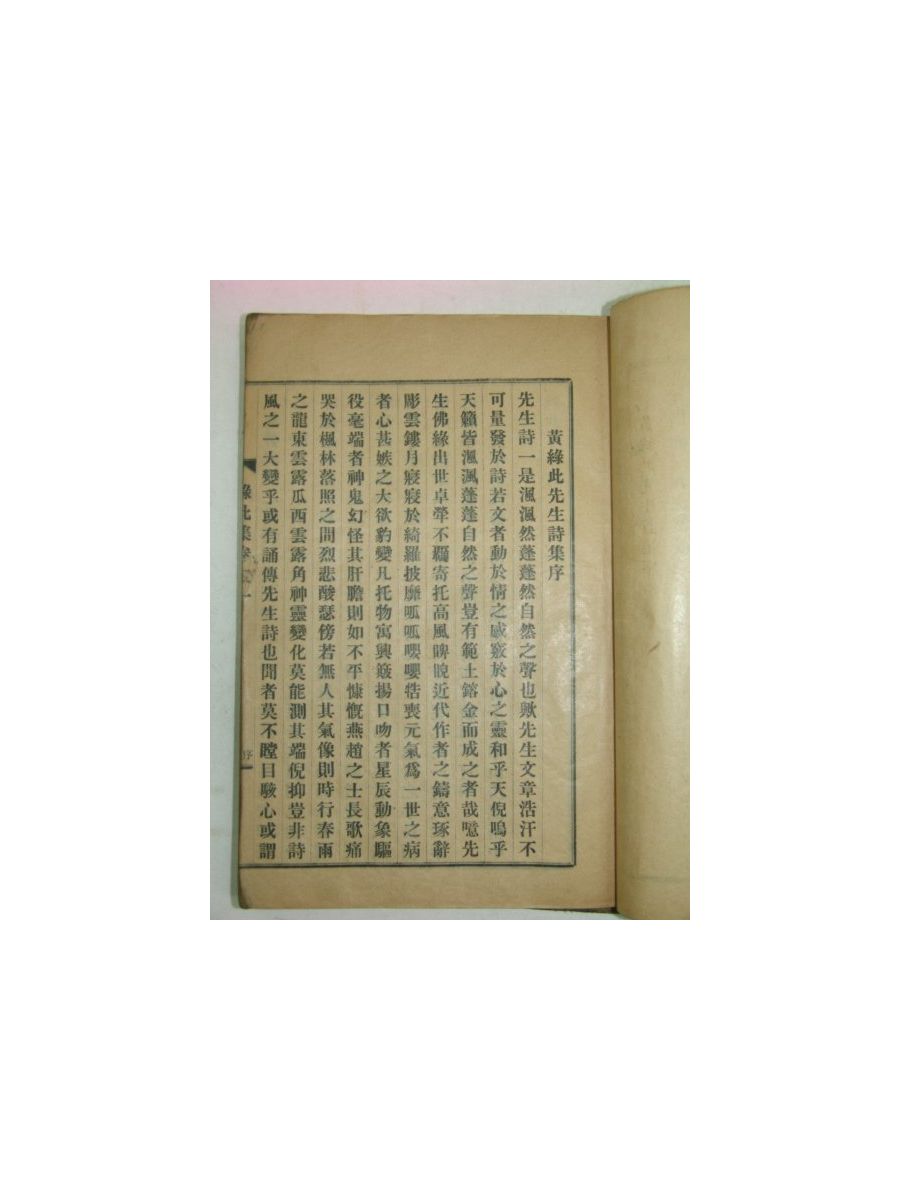 黃綠此先生詩集序
先生詩一是渢渢然蓬蓬然自然之聲也歟先生文章浩汗不
可量發於詩若文者動於情之感竅於心之靈和乎天倪鳴乎
天籟皆渢渢蓬蓬自然之聲豈有範土鎔金而成之者哉噫先
生佛緣出世卓犖不羈寄托高風睥睨近代作者之鑄意琢辭
彫雲鏤月寢寢於綺羅披靡呱呱嚶嚶牿喪元氣爲一世之病
者心甚嫉之大欲豹變凡托物寓興簸揚口吻者星辰動象驅
役毫端者神鬼幻怪其肝膽則如不平慷慨燕趙之士長歌痛
哭於楓林落照之間烈悲酸瑟傍若無人其氣像則時行春雨
之龍東雲露瓜西雲露角神靈變化莫能測其端倪抑豈非詩
風之一大變乎或有誦傳先生詩也聞者莫不瞠目駭心或謂
綠此集 序